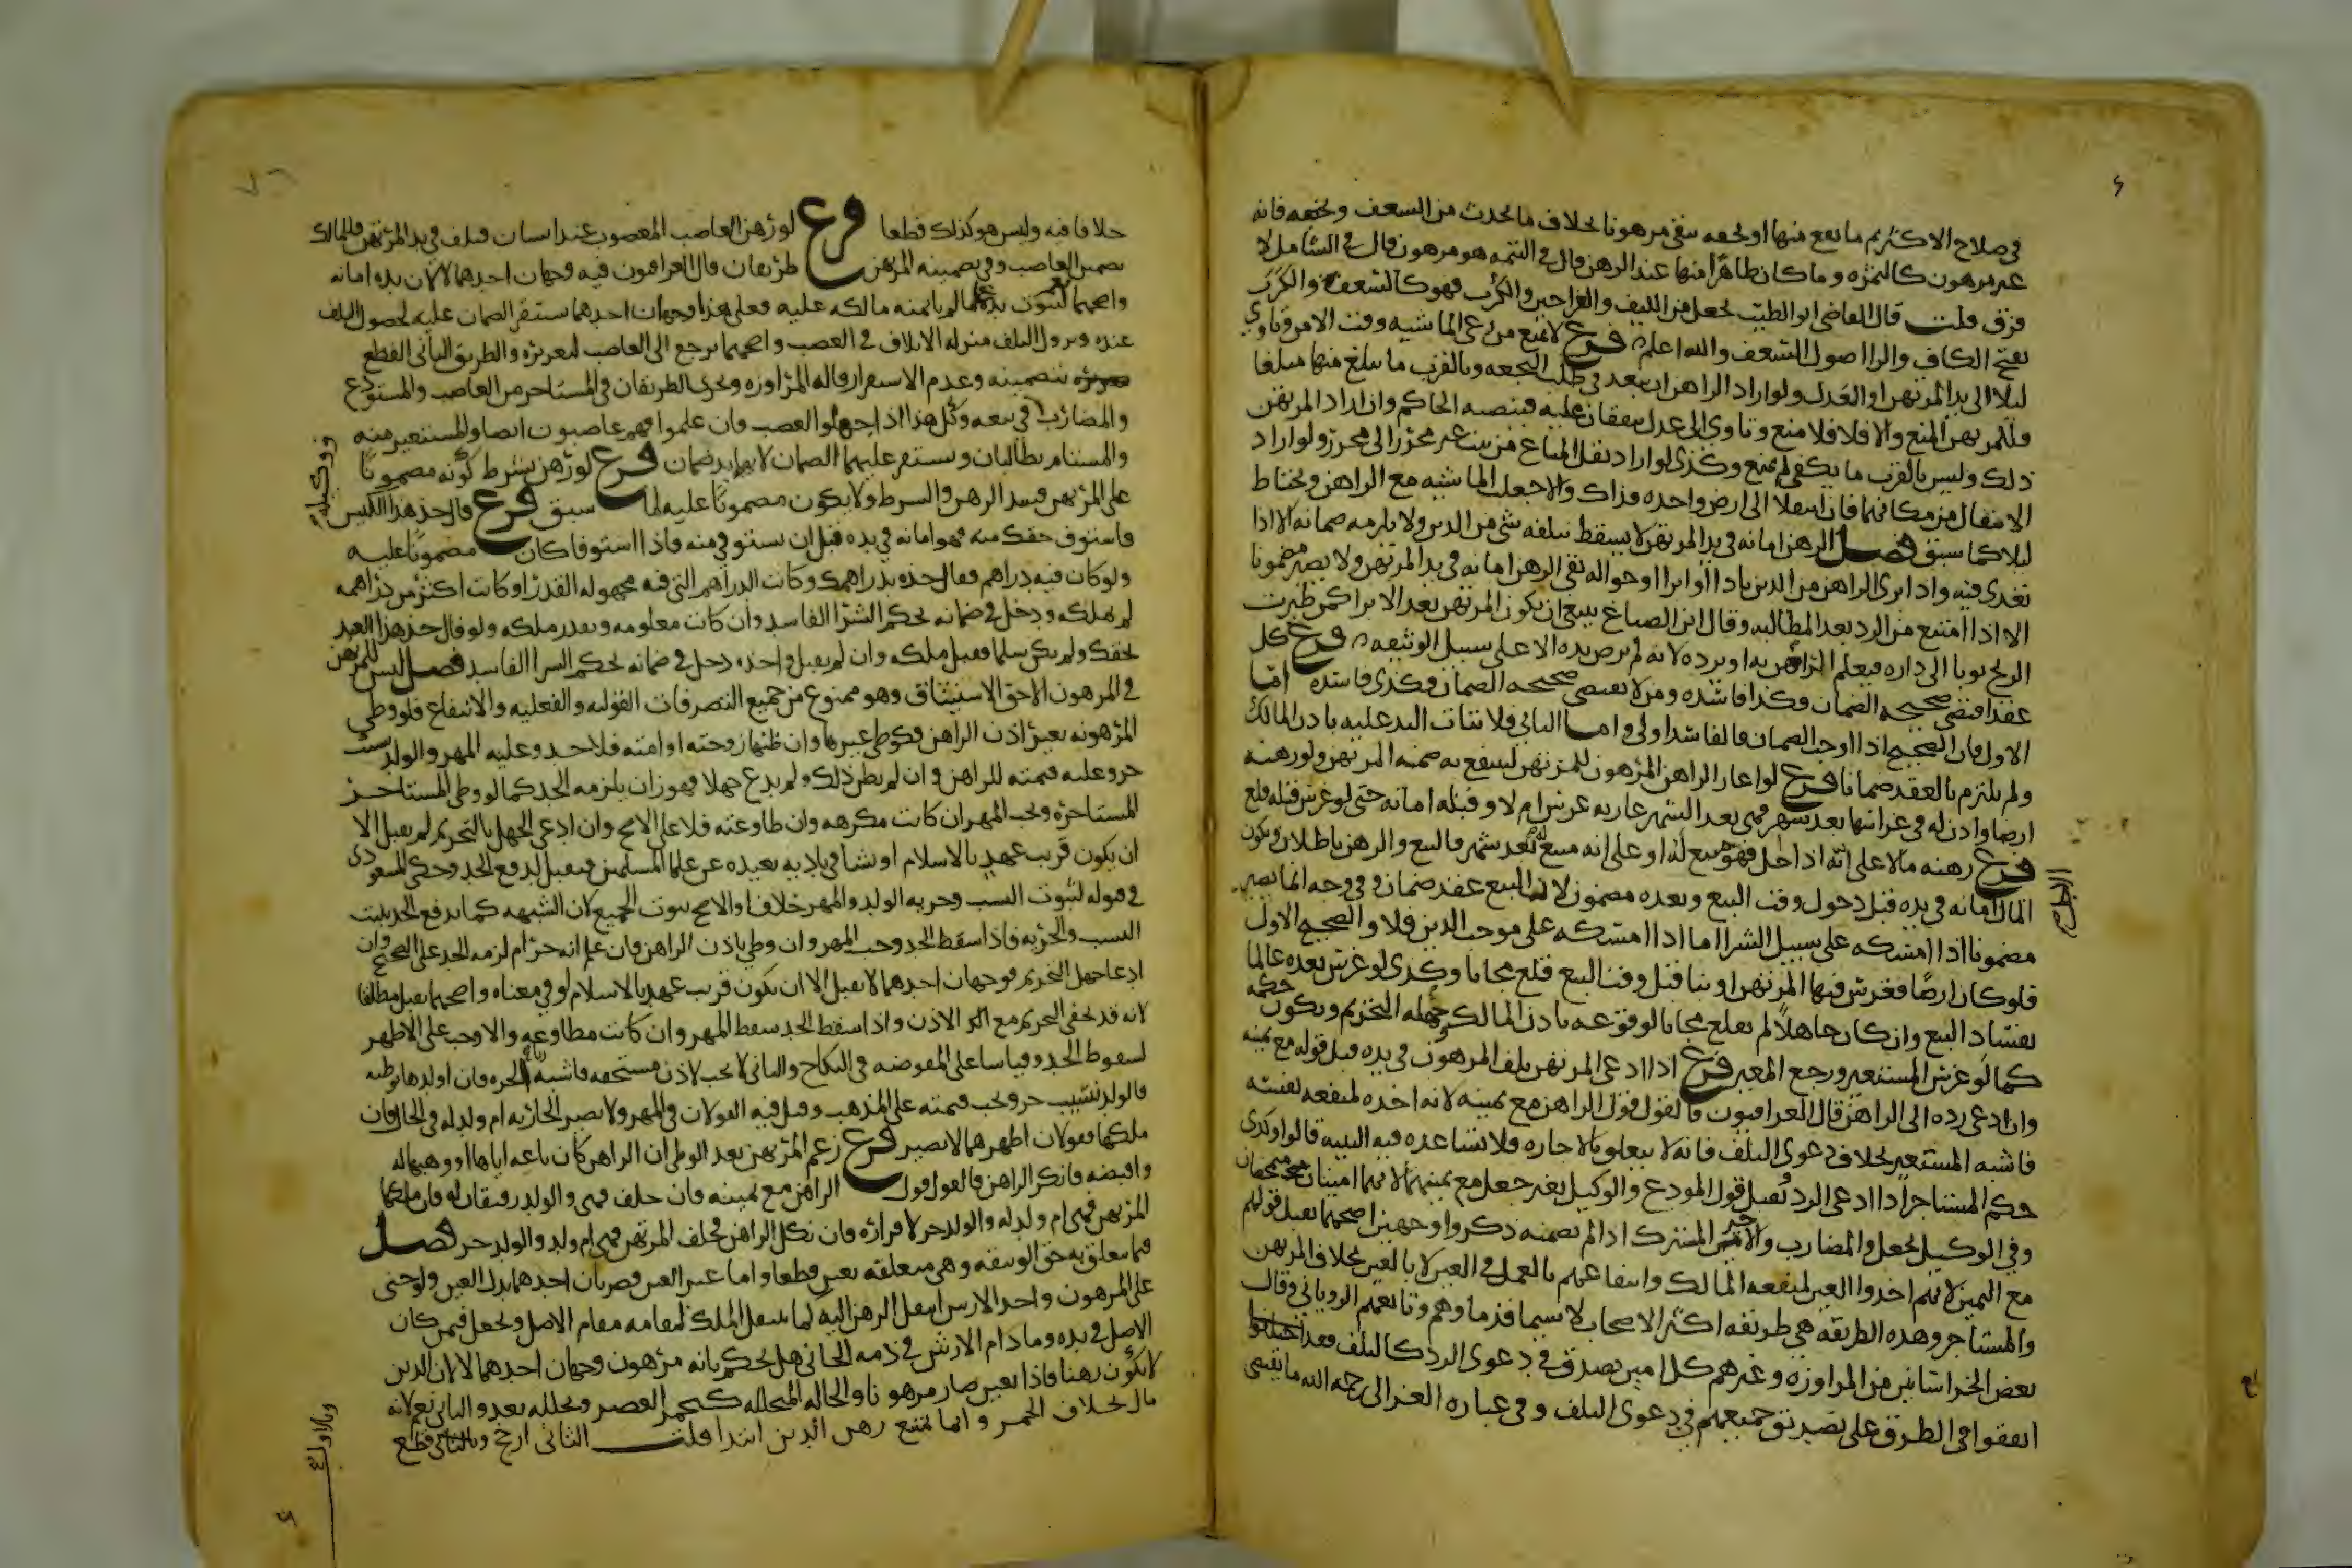 في صلاح الاكثر ثم ما يقع منها او يجفه يبقى مرهونا بخلاف ما يحدث من السعف ويجفه فانه
غير مرهون كالثمرة وما كان ظاهرا منها عند الرهن قال في التتمه هو مرهون قال في الشامل لا
فرق قلت قال القاضي ابو الطيب يجعل من الليف والعراجين والكرب فهو كالسعف والكرب
بفتح الكاف والرا اصول السعف والله اعلم فرع لا يمنع من رعي الماشيه وقت الامن وتاوي
ليلا الى يد المرتهن او العدل ولو اراد الراهن ان يبعد في طلب النجعه وبالقرب ما يبلغ منها مبلغا
فللمرتهن المنع والا فلا منع وتاوي الى عدل يتفقان عليه فينصبه الحاكم وان اراد المرتهن
ذلك وليس بالقرب ما يكفي لم يمنع وكذى لو اراد نقل المتاع من بيت غير محرز الى محرز ولو اراد
الانتقال من مكانهما فان انتقلا الى ارض واحده فذاك والا جعلت الماشيه مع الراهن ويحتاط
ليلا كما سبق فصل الرهن امانه في يد المرتهن لا يسقط بتلفه شي من الدين ولا يلزمه ضمانه الا اذا
تعدى فيه واذا بري الراهن من الدين باداا او ابراا او حواله بقي الرهن امانه في يد المرتهن ولا يصير مضمونا
الا اذا امتنع من الرد بعد المطالبه وقال ابن الصباغ ينبغي ان يكون المرتهن بعد الابرا كمن طيرت
الريح ثوبا الى داره فيعلم الراهن به او يرده لانه لم يرض بيده الا على سبيل الوثيقه فرع كل
عقد اقتضى صحيحه الضمان وكذا فاسده وما لا يقتضي صحيحه الضمان فكذى فاسده اما
الاول فان الصحيح اذا اوجب الضمان فالفاسد اولى واما الثاني فلان اثبات اليد عليه باذن المالك
ولم يلتزم بالعقد ضمانا فرع لو اعار الراهن المرهون للمرتهن لينتفع به ضمنه المرتهن ولو رهنه
ارضا واذن له في غراسها بعد شهر فهي بعد الشهر عاريه غرس ام لا وقبله امانه حتى لو غرس قبله قلع
فرع رهنه مالا على انه اذا حل فهو مبيع له او على انه مبيع له بعد شهر فالبيع والرهن باطلان ويكون
المال امانه في يده قبل دخول وقت البيع وبعده مضمون لان البيع عقد ضمان وفي وجه انما يصير
مضمونا اذا امسكه على سبيل الشرا اما اذا امسكه على موجب الدين فلا والصحيح الاول
فلو كان ارضا فغرس فيها المرتهن او بنا قبل وقت البيع قلع مجانا وكذى لو غرس بعده عالما
بفساد البيع وان كان جاهلا لم يقلع مجانا لوقوعه باذن المالك وجهله التحريم ويكون حكمه
كما لو غرس المستعير ورجع المعير فرع اذا ادعى المرتهن تلف المرهون في يده قبل قوله مع يمينه
وان ادعى رده الى الراهن قال العراقيون فالقول قول الراهن مع يمينه لانه اخذه لمنفعه نفسه
فاشبه المستعير بخلاف دعوى التلف فانه لا يتعلق بالاختياره فلا تساعده فيه البينه قالوا وكذى
حكم المستاجر اذا ادعى الرد ويقبل قول المودع والوكيل بغير جعل مع يمينهما لانهما امينان متمحضان
وفي الوكيل بجعل والمضارب والاجير المشترك اذا لم نضمنه ذكروا وجهين اصحهما يقبل قولهم
مع اليمين لانهم اخذوا العين لمنفعه المالك وانتفاعهم بالعمل في العين لا بالعين بخلاف المرتهن
والمستاجر وهذه الطريقه هي طريقه اكثر الاصحاب لا سيما قدماؤهم وتابعهم الروياني وقال
بعض الخراسانيين من المراوزه وغيرهم كل امين يصدق في دعوى الرد كالتلف فقد
اتفقوا في الطرق على تصديق جميعهم في دعوى التلف وفي عباره الغزالي رحمه الله ما يقتضي
خلافا فيه وليس هو كذلك قطعا فرع لو رهن الغاصب المغصوب عند انسان فتلف في يد المرتهن فللمالك
تضمين الغاصب وفي تضمينه المرتهن طريقان قال العراقيون فيه وجهان احدهما لا لان يده امانه
واصحهما نعم لثبوت يده على ما لم ياتمنه مالكه عليه فعلى هذا وجهان احدهما يستقر الضمان عليه لحصول التلف
عنده ونزول التلف منزله الاتلاف في الغصب واصحهما يرجع الى الغاصب لتغريره والطريق الثاني القطع
بتضمينه وعدم الاستقرار قاله المراوزه وتجري الطريقان في المستاجر من الغاصب والمستودع
والمضارب في بيعه وكل هذا اذا جهلوا الغصب فان علموا فهم غاصبون ايضا والمستعير منه
والمستام يطالبان ويستقر عليهما الضمان لانها يد ضمان فرع لو رهن بشرط كونه مضمونا
على المرتهن فسد الرهن والشرط ولا يكون مضمونا عليه لما سبق فرع قال خذ هذا الكيس
فاستوف حقك منه فهو امانه في يده قبل ان يستوفي منه فاذا استوفا كان مضمونا عليه
ولو كان فيه دراهم فقال خذه بدراهمك وكانت الدراهم التي فيه مجهوله القدر او كانت اكثر من دراهمه
لم يملكه ودخل في ضمانه بحكم الشرا الفاسد وان كانت معلومه وبقدر ملكه ولو قال خذ هذا العبد
بحقك ولم يكن سلما فقبل ملكه وان لم يقبل واخذه دخل في ضمانه بحكم الشرا الفاسد فصل ليس للمرتهن
في المرهون الا حق الاستيثاق وهو ممنوع من جميع التصرفات القوليه والفعليه والانتفاع فلو وطي
المرهونه بغير اذن الراهن فكوطي غيرها وان ظنها زوجته او امته فلا حد وعليه المهر والولد نسيب
حر وعليه قيمته للراهن وان لم يظن ذلك ولم يدع جهلا فهو زان يلزمه الحد كما لو وطي المستاجر
المستاجره ويجب المهر ان كانت مكرهه وان طاوعته فلا على الاصح وان ادعى الجهل بالتحريم لم يقبل الا
ان يكون قريب عهد بالاسلام او نشا في باديه بعيده عن علما المسلمين فيقبل لدفع الحد وحكى المسعودي
في قوله لثبوت النسب وحريه الولد والمهر خلافا والاصح ثبوت الجميع لان الشبهه كما تدفع الحد يثبت
النسب والحريه فاذا سقط الحد وجب المهر وان وطي باذن الراهن فان علم انه حرام لزمه الحد على الصحيح وان
ادعا جهل التحريم فوجهان احدهما لا يقبل الا ان يكون قريب عهد بالاسلام او في معناه واصحهما يقبل مطلقا
لانه قد يخفى التحريم مع الاذن واذا سقط الحد سقط المهر وان كانت مطاوعه والا وجب على الاظهر
لسقوط الحد وقياسا على المفوضه في النكاح والثاني لا يجب لاذن مستحقه فاشبه زنا الحره فان اولدها بوطيه
فالولد نسيب حر وتجب قيمته على المذهب وقيل فيه القولان في المهر ولا تصير الجاريه ام ولد له في الحال فان
ملكها فقولان اظهرهما لا تصير فرع زعم المرتهن بعد الوطي ان الراهن كان باعه اياها او وهبها له
واقبضه فانكر الراهن فالقول قول الراهن مع يمينه فان حلف فهي والولد رقيقان له فان ملكها
المرتهن فهي ام ولد له والولد حر لاقراره فان نكل الراهن فحلف المرتهن فهي ام ولد والولد حر فصل
فيما يتعلق به حق الوثيقه وهي متعلقه بعين قطعا واما غير العين فضربان احدهما بدل العين ولو جنى
على المرهون واخذ الارش انتقل الرهن اليه كما ينتقل الملك لقيامه مقام الاصل ويجعل فيمن كان
الاصل في يده وما دام الارش في ذمه الجاني هل يحكم بانه مرهون وجهان احدهما لا لان الدين
لا يكون رهنا فاذا تعين صار مرهونا والحاله المتخلله كتخمر العصير وتخلله بعد والثاني نعم لانه
مال بخلاف الخمر وانما يمتنع رهن الدين ابتدا قلت الثاني ارجح وبالثاني قطع